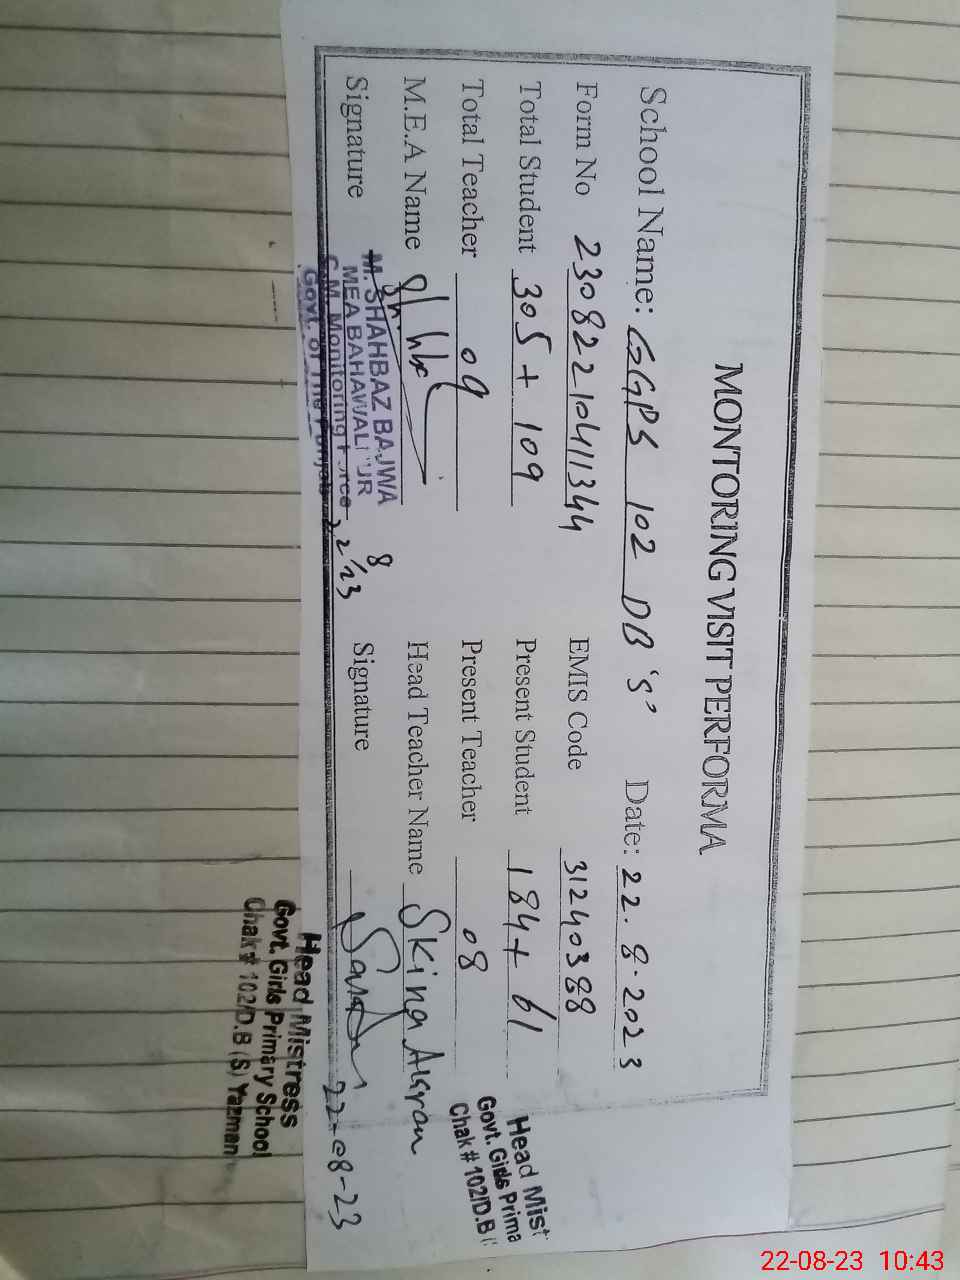 MONTORING VISIT PERFORMA
School Name: GGPS 102 DB 'S' Date: 22.8.2023
Form No 23082210411344 EMIS Code 31240388
Total Student 305 + 109 Present Student 184 + 61
Total Teacher 09 Present Teacher 08
M.E.A Name Head Teacher Name
Signature Signature
M. SHAHBAZ BAJWA
MEA BAHAWALPUR
C.M. Monitoring Force
Govt. of The Punjab
22/8/23
22-08-23
Head Mist
Govt. Girls Prima
Chak # 102/D.B (
Head Mistress
Govt. Girls Primary School
Chak # 102/D.B (S) Yazman
22-08-23 10:43